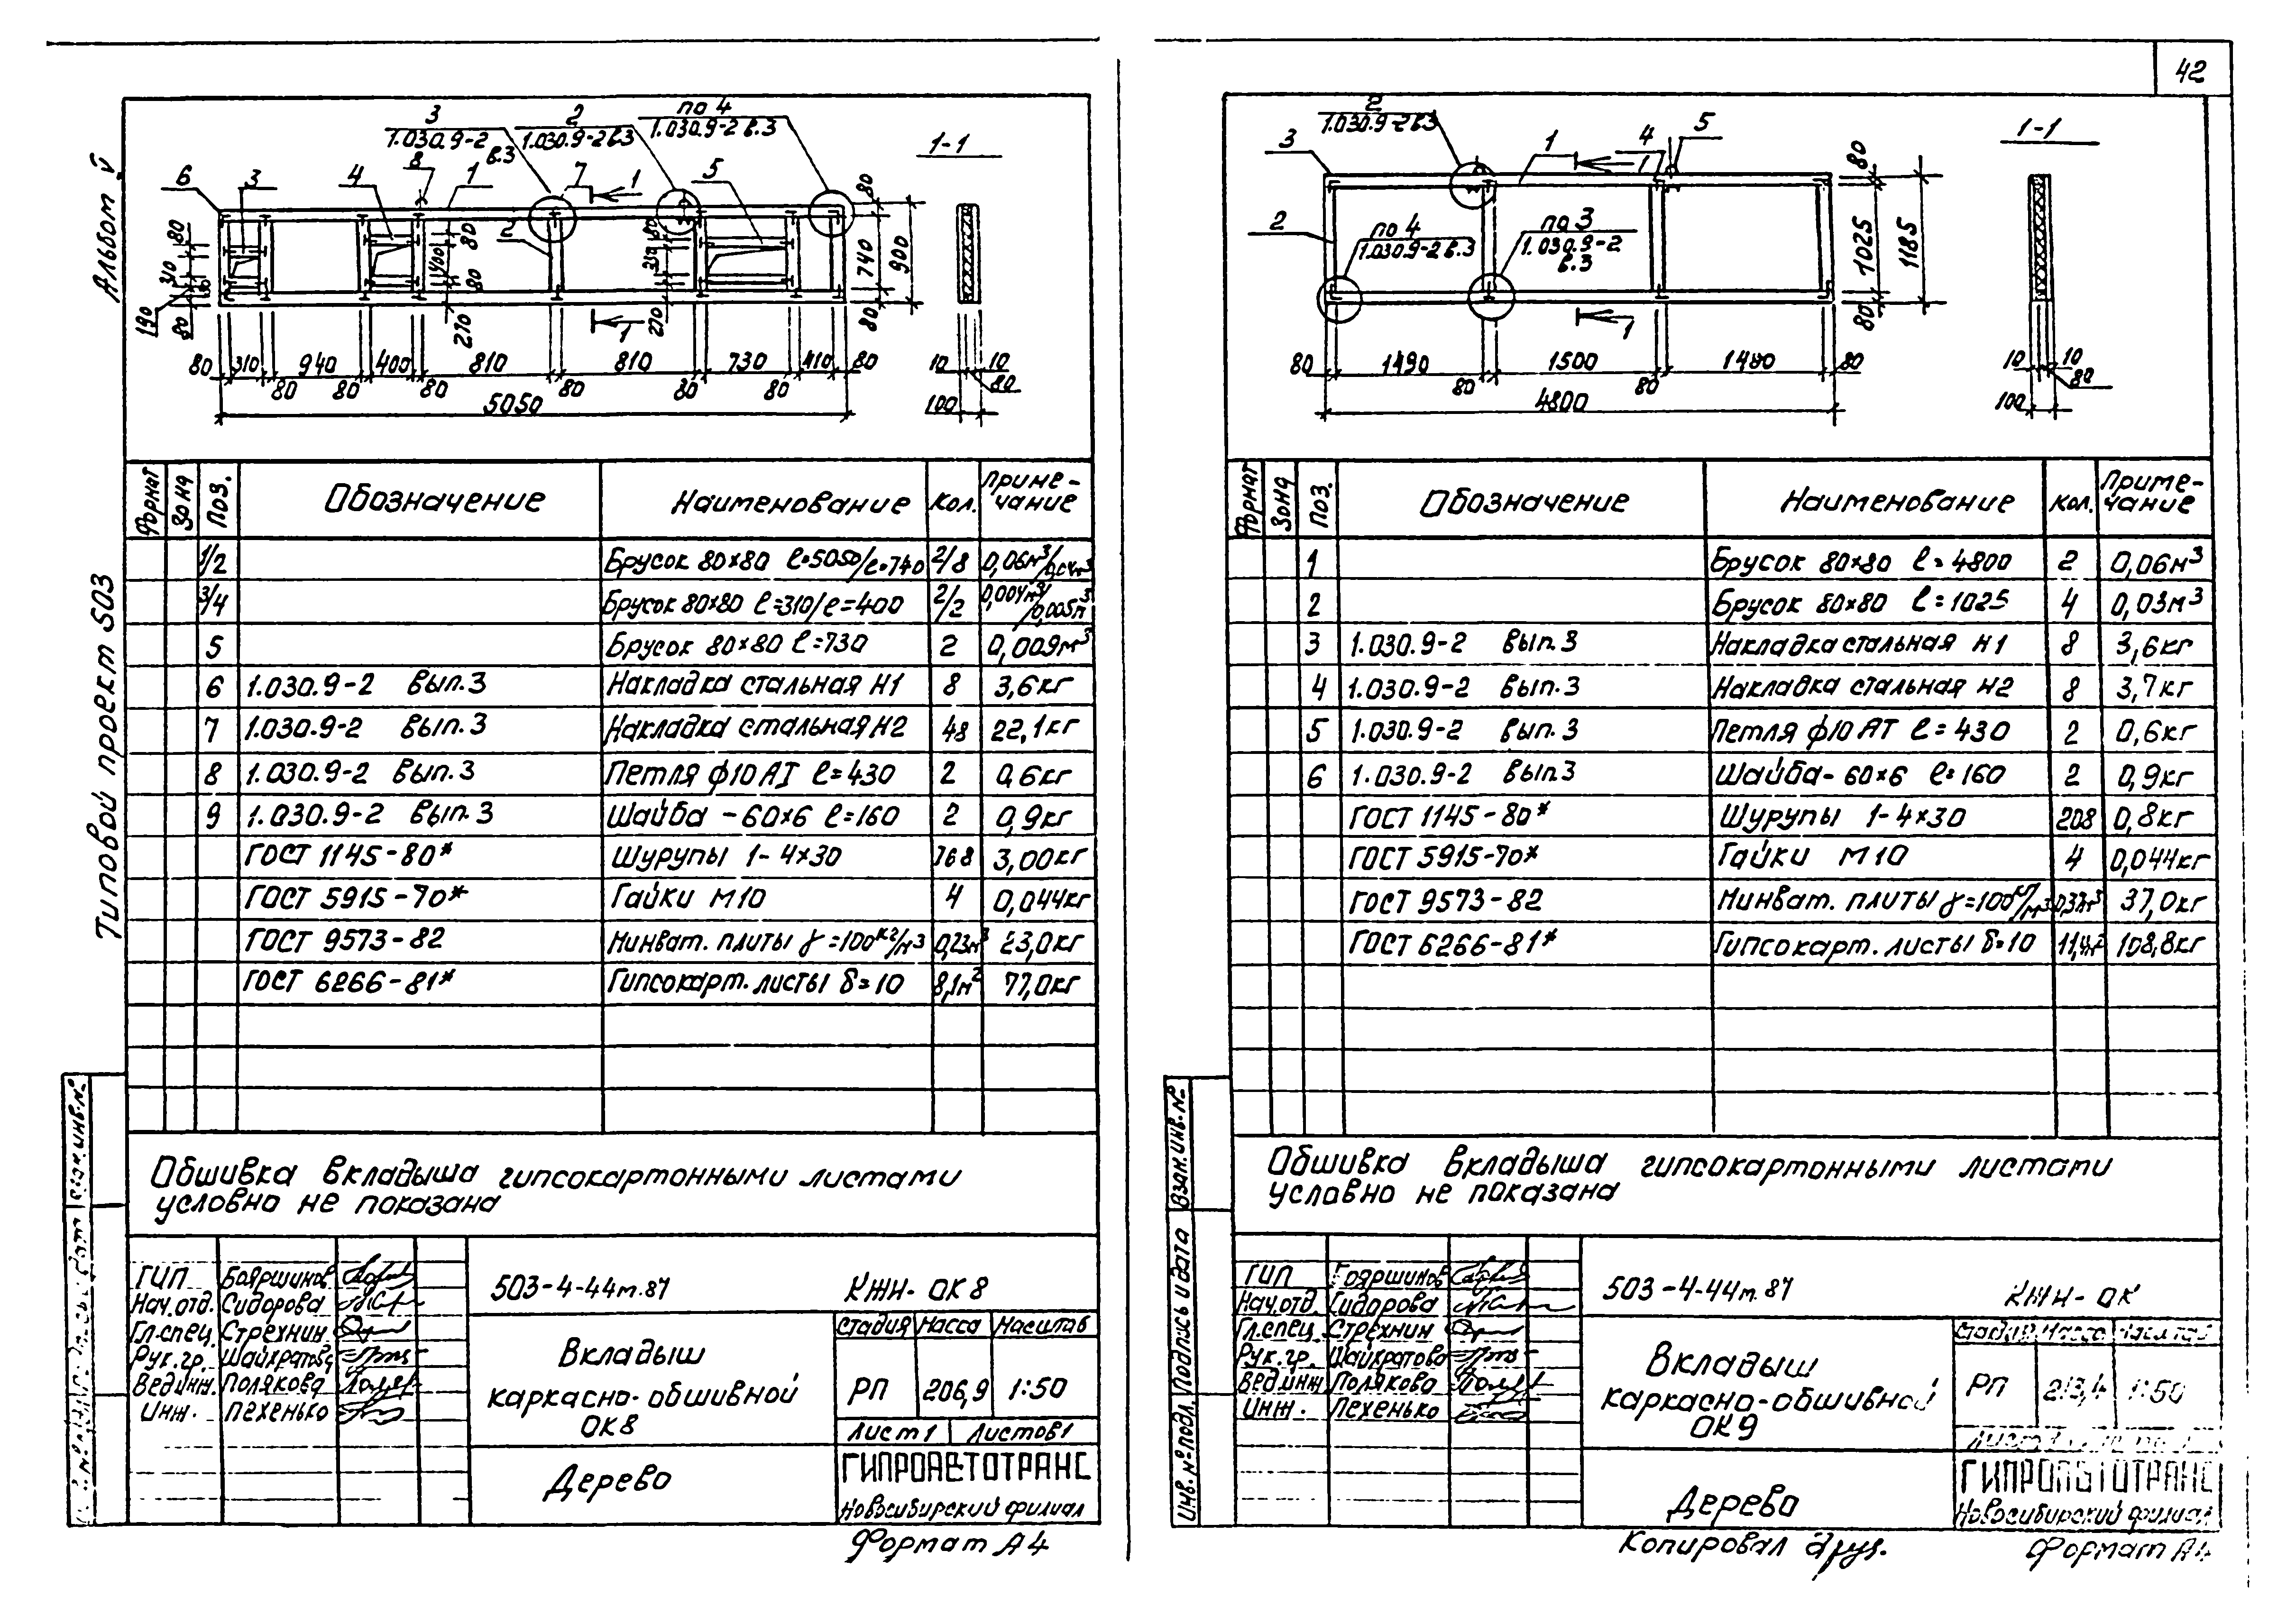 42
Альбом V
Типовой проект 503
3
1.030.9-2
в.3
2
1.030.9-2 в.3
по 4
1.030.9-2 в.3
1-1
6 3 4 8 1 7 1 5
2
80 310 190 80
400 80 80 270
80 270
80 740 900 80
80 310 940 400 810 810 730 410 80
80 80 80 80 80 80
5050
10 10
80
100
1
Формат Зона Поз. Обозначение Наименование Кол. Примечание
1/2 Брусок 80×80 ℓ=5050/ℓ=740 2/8 0,06м³/0,04м³
3/4 Брусок 80×80 ℓ=310/ℓ=400 2/2 0,004м³/0,005м³
5 Брусок 80×80 ℓ=730 2 0,009м³
6 1.030.9-2 вып.3 Накладка стальная Н1 8 3,6кг
7 1.030.9-2 вып.3 Накладка стальная Н2 48 22,1кг
8 1.030.9-2 вып.3 Петля ф10 АI ℓ=430 2 0,6кг
9 1.030.9-2 вып.3 Шайба -60×6 ℓ=160 2 0,9кг
ГОСТ 1145-80* Шурупы 1-4×30 768 3,00кг
ГОСТ 5915-70* Гайки М10 4 0,044кг
ГОСТ 9573-82 Минват. плиты γ=100кг/м³ 0,23м³ 23,0кг
ГОСТ 6266-81* Гипсокарт. листы δ=10 8,1м² 77,0кг
Обшивка вкладыша гипсокартонными листами
условно не показана
ГИП Бояршинов
Нач.отд. Сидорова
Гл.спец. Стрехнин
Рук.гр. Шайхратова
Вед.инж. Полякова
Инж. Пехенько
503-4-44т.87 КЖИ-ОК8
Вкладыш
каркасно-обшивной
ОК8
Стадия Масса Масштаб
РП 206,9 1:50
Лист 1 Листов 1
Дерево
ГИПРОАВТОТРАНС
Новосибирский филиал
Формат А4
2
1.030.9-2 в.3
3 1 1 4 5
1-1
2
по 4
1.030.9-2 в.3
по 3
1.030.9-2
в.3
1
80 1025 1185 80
80 1490 1500 1480 80
80 80
4800
10 10
80
100
Формат Зона Поз. Обозначение Наименование Кол. Примечание
1 Брусок 80×80 ℓ=4800 2 0,06м³
2 Брусок 80×80 ℓ=1025 4 0,03м³
3 1.030.9-2 вып.3 Накладка стальная Н1 8 3,6кг
4 1.030.9-2 вып.3 Накладка стальная Н2 8 3,7кг
5 1.030.9-2 вып.3 Петля ф10 АТ ℓ=430 2 0,6кг
6 1.030.9-2 вып.3 Шайба-60×6 ℓ=160 2 0,9кг
ГОСТ 1145-80* Шурупы 1-4×30 208 0,8кг
ГОСТ 5915-70* Гайки М10 4 0,044кг
ГОСТ 9573-82 Минват. плиты γ=100кг/м³ 0,37м³ 37,0кг
ГОСТ 6266-81* Гипсокарт. листы δ=10 11,4м² 108,8кг
Обшивка вкладыша гипсокартонными листами
условно не показана
Взам.инв.№
Подпись и дата
Инв.№ подл.
ГИП Бояршинов
Нач.отд. Сидорова
Гл.спец. Стрехнин
Рук.гр. Шайхратова
Вед.инж Полякова
Инж. Пехенько
503-4-44т.87 КЖИ-ОК
Вкладыш
каркасно-обшивной
ОК9
Стадия Масса Масштаб
РП 213,4 1:50
Дерево
ГИПРОАВТОТРАНС
Новосибирский филиал
Копировал
Формат А4